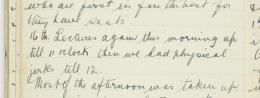 who are first in for the best for
they have seats.
16th. Lectures again this morning up
till 11 o'clock then we had physical
jerks till 12.
Most of the afternoon was taken up